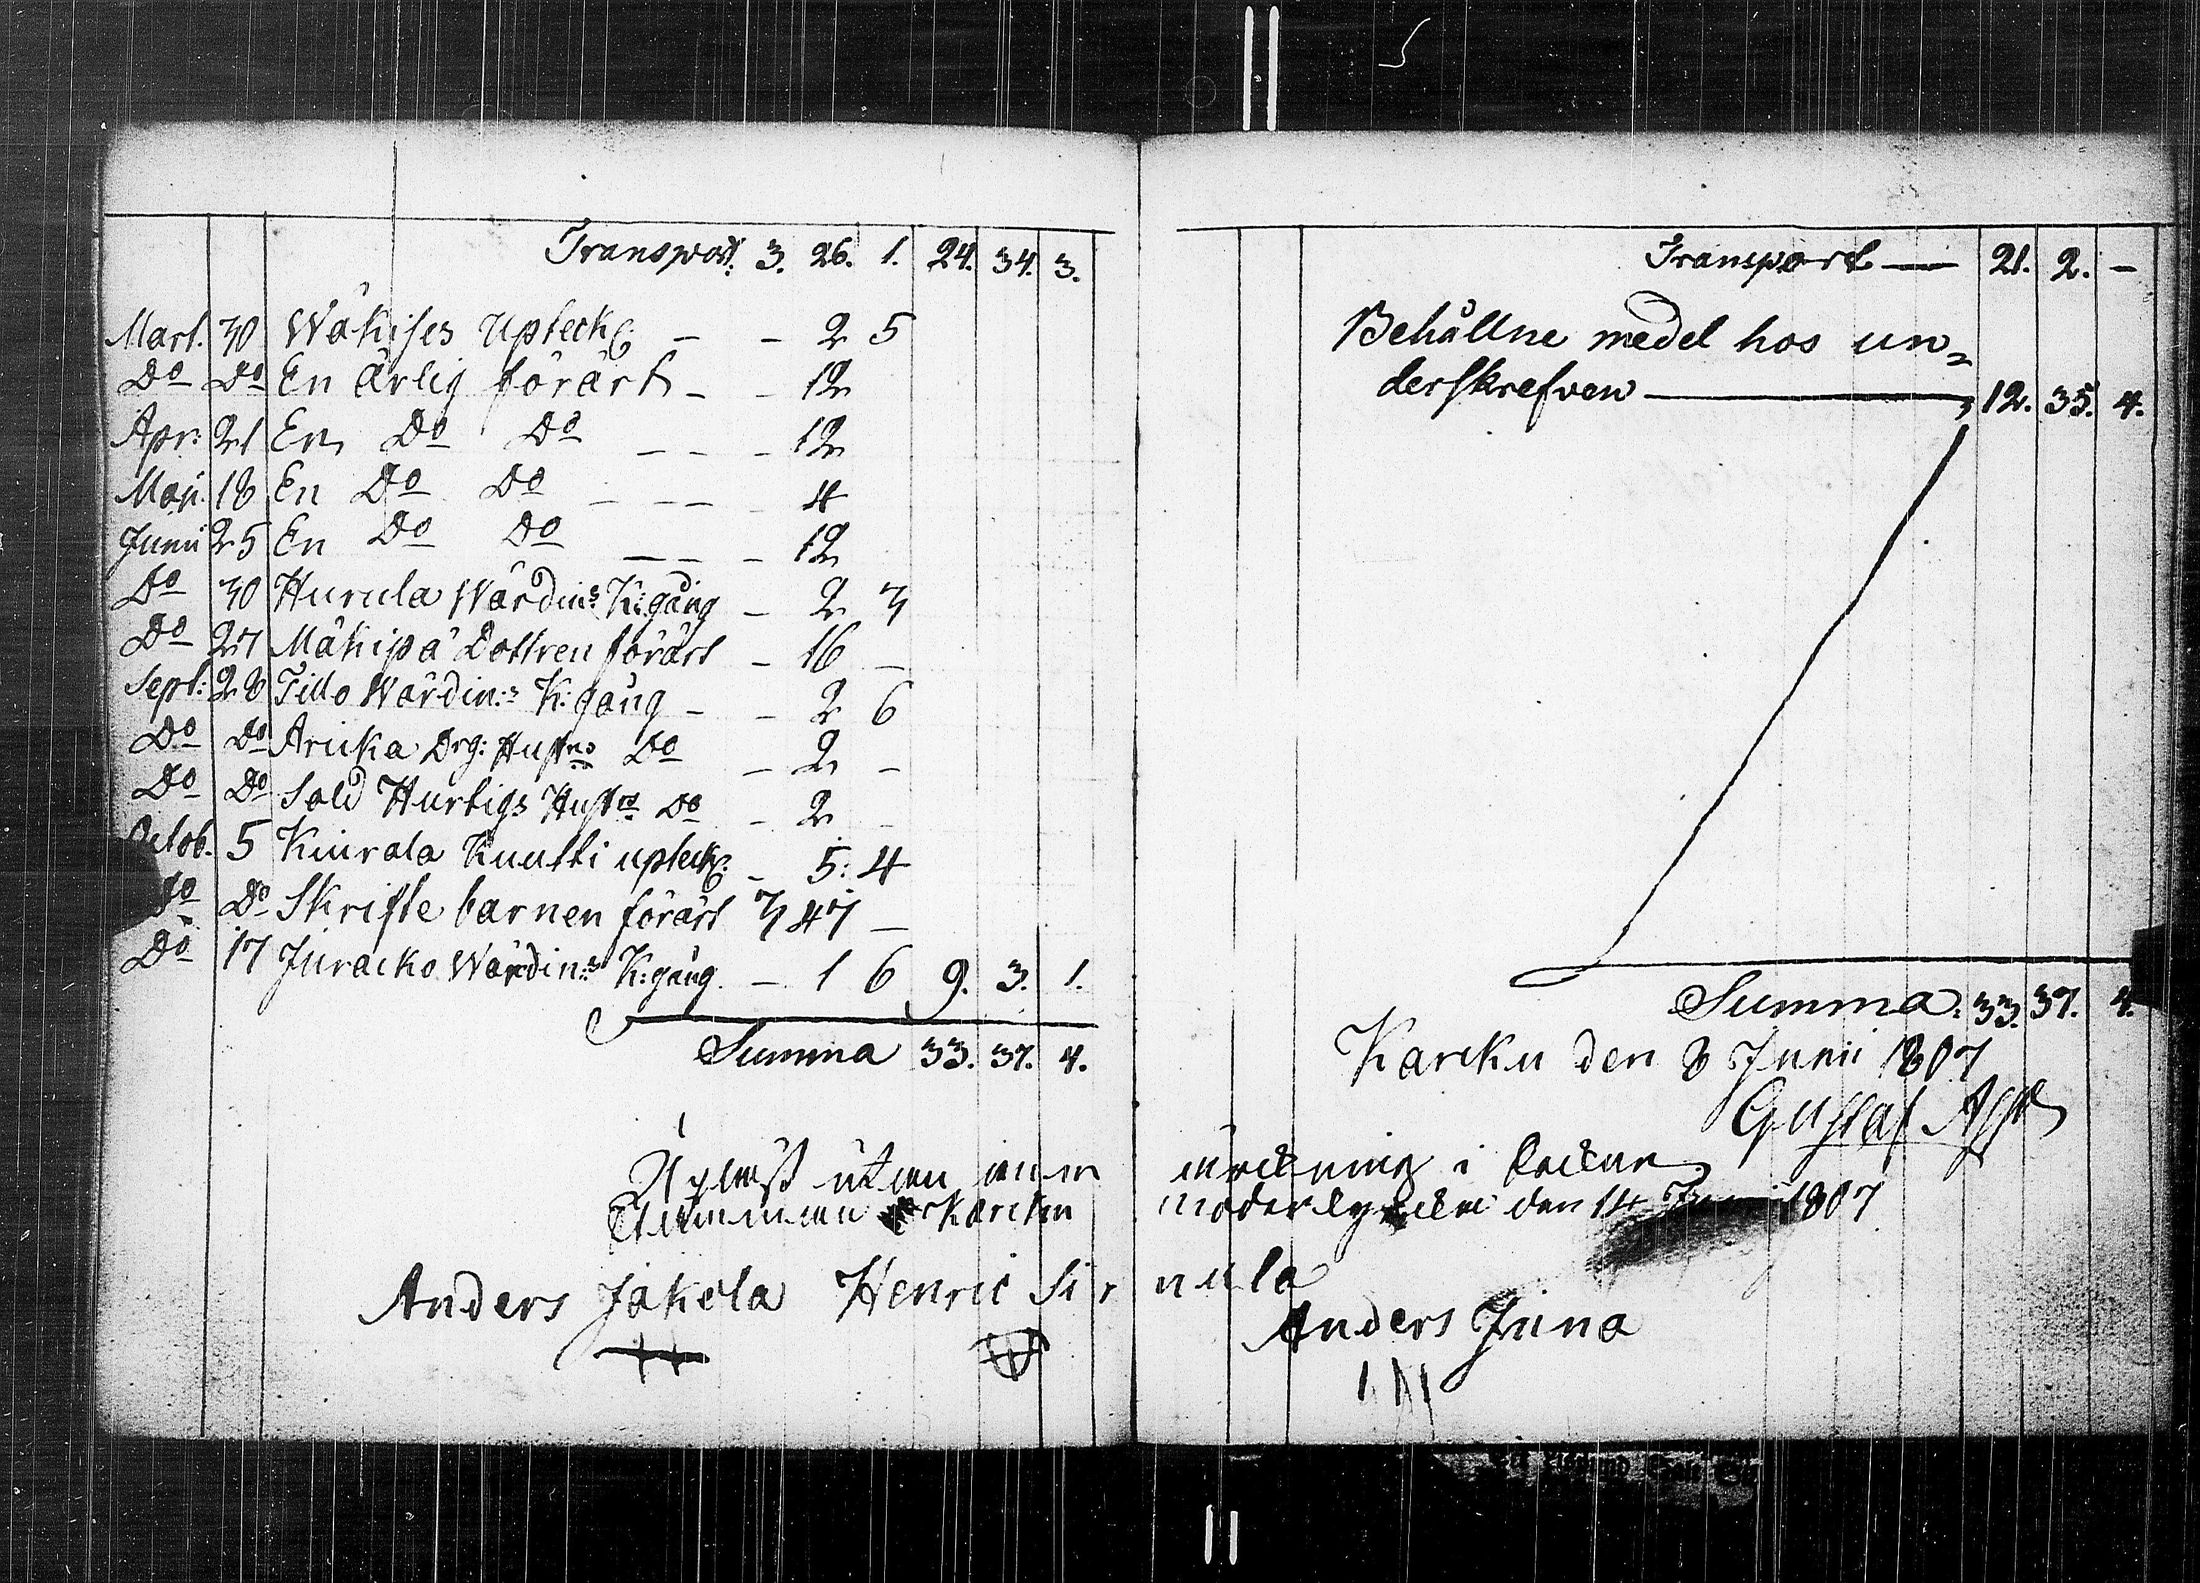 Transport. 3. 26. 1. 24. 34. 3.
Mart. 30 Wäkises upteckg: - - 2 5
Do Do En ärlig förärt - - 12
Apr: 21 En Do Do - - - 12
Maji. 18 En Do Do - - - 4
Junii 25 En Do Do - - - 12
Do 30 Hurula Wärdin:s K:gång - 2 3
Do 27 Mäkipä Dottren förärt - 16 -
Sept: 28 Tillo Wärdin:s K:gång - - 2 6
Do Do Aricka Drg: Hustrs Do - 2 -
Do Do Sold Hurtigs Hustrs Do - 2 -
Octob. 5 Kiurala Knutti upteckg: - 5: 4
Do Do Skrifte barnen förärt 3 47 -
Do 17 Juracko Wärdin:s K:gång. - 1 6 9. 3. 1.
Summa 33. 37. 4.
Transport — 21. 2. -
Behållne medel hos un=
derskrefven — 12. 35. 4.
Summa. 33. 37. 4.
Karcku den 8 Junii 1807
Gustaf
Upläst utan
i
Stämman Karcku moderkyrcka den 14 Junii 1807
Anders Jäkelä Henric Sirnula
Anders Juna